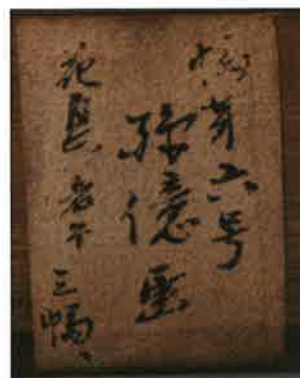 第六号
孫億画
花鳥 三幅